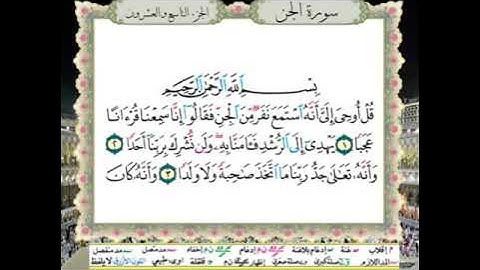 سورة الجن
الجزء التاسع والعشرون
بِسْمِ اللَّهِ الرَّحْمَٰنِ الرَّحِيمِ
قُلْ أُوحِيَ إِلَيَّ أَنَّهُ ٱسْتَمَعَ نَفَرٌ مِّنَ ٱلْجِنِّ فَقَالُوٓا۟ إِنَّا سَمِعْنَا قُرْءَانًا
عَجَبًا ١ يَهْدِىٓ إِلَى ٱلرُّشْدِ فَـَٔامَنَّا بِهِۦ وَلَن نُّشْرِكَ بِرَبِّنَآ أَحَدًا ٢
وَأَنَّهُۥ تَعَٰلَىٰ جَدُّ رَبِّنَا مَا ٱتَّخَذَ صَٰحِبَةً وَلَا وَلَدًا ٣ وَأَنَّهُۥ كَانَ